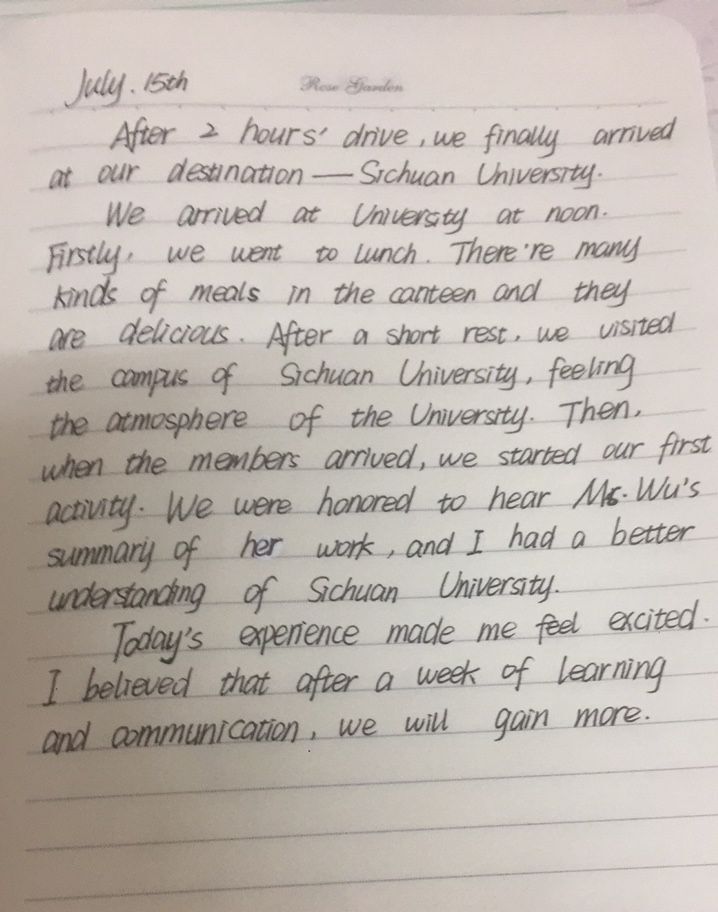 July. 15th
Rose Garden
After 2 hours' drive, we finally arrived
at our destination — Sichuan University.
We arrived at University at noon.
Firstly, we went to lunch. There're many
kinds of meals in the canteen and they
are delicious. After a short rest, we visited
the campus of Sichuan University, feeling
the atmosphere of the University. Then,
when the members arrived, we started our first
activity. We were honored to hear Ms. Wu's
summary of her work, and I had a better
understanding of Sichuan University.
Today's experience made me feel excited.
I believed that after a week of learning
and communication, we will gain more.